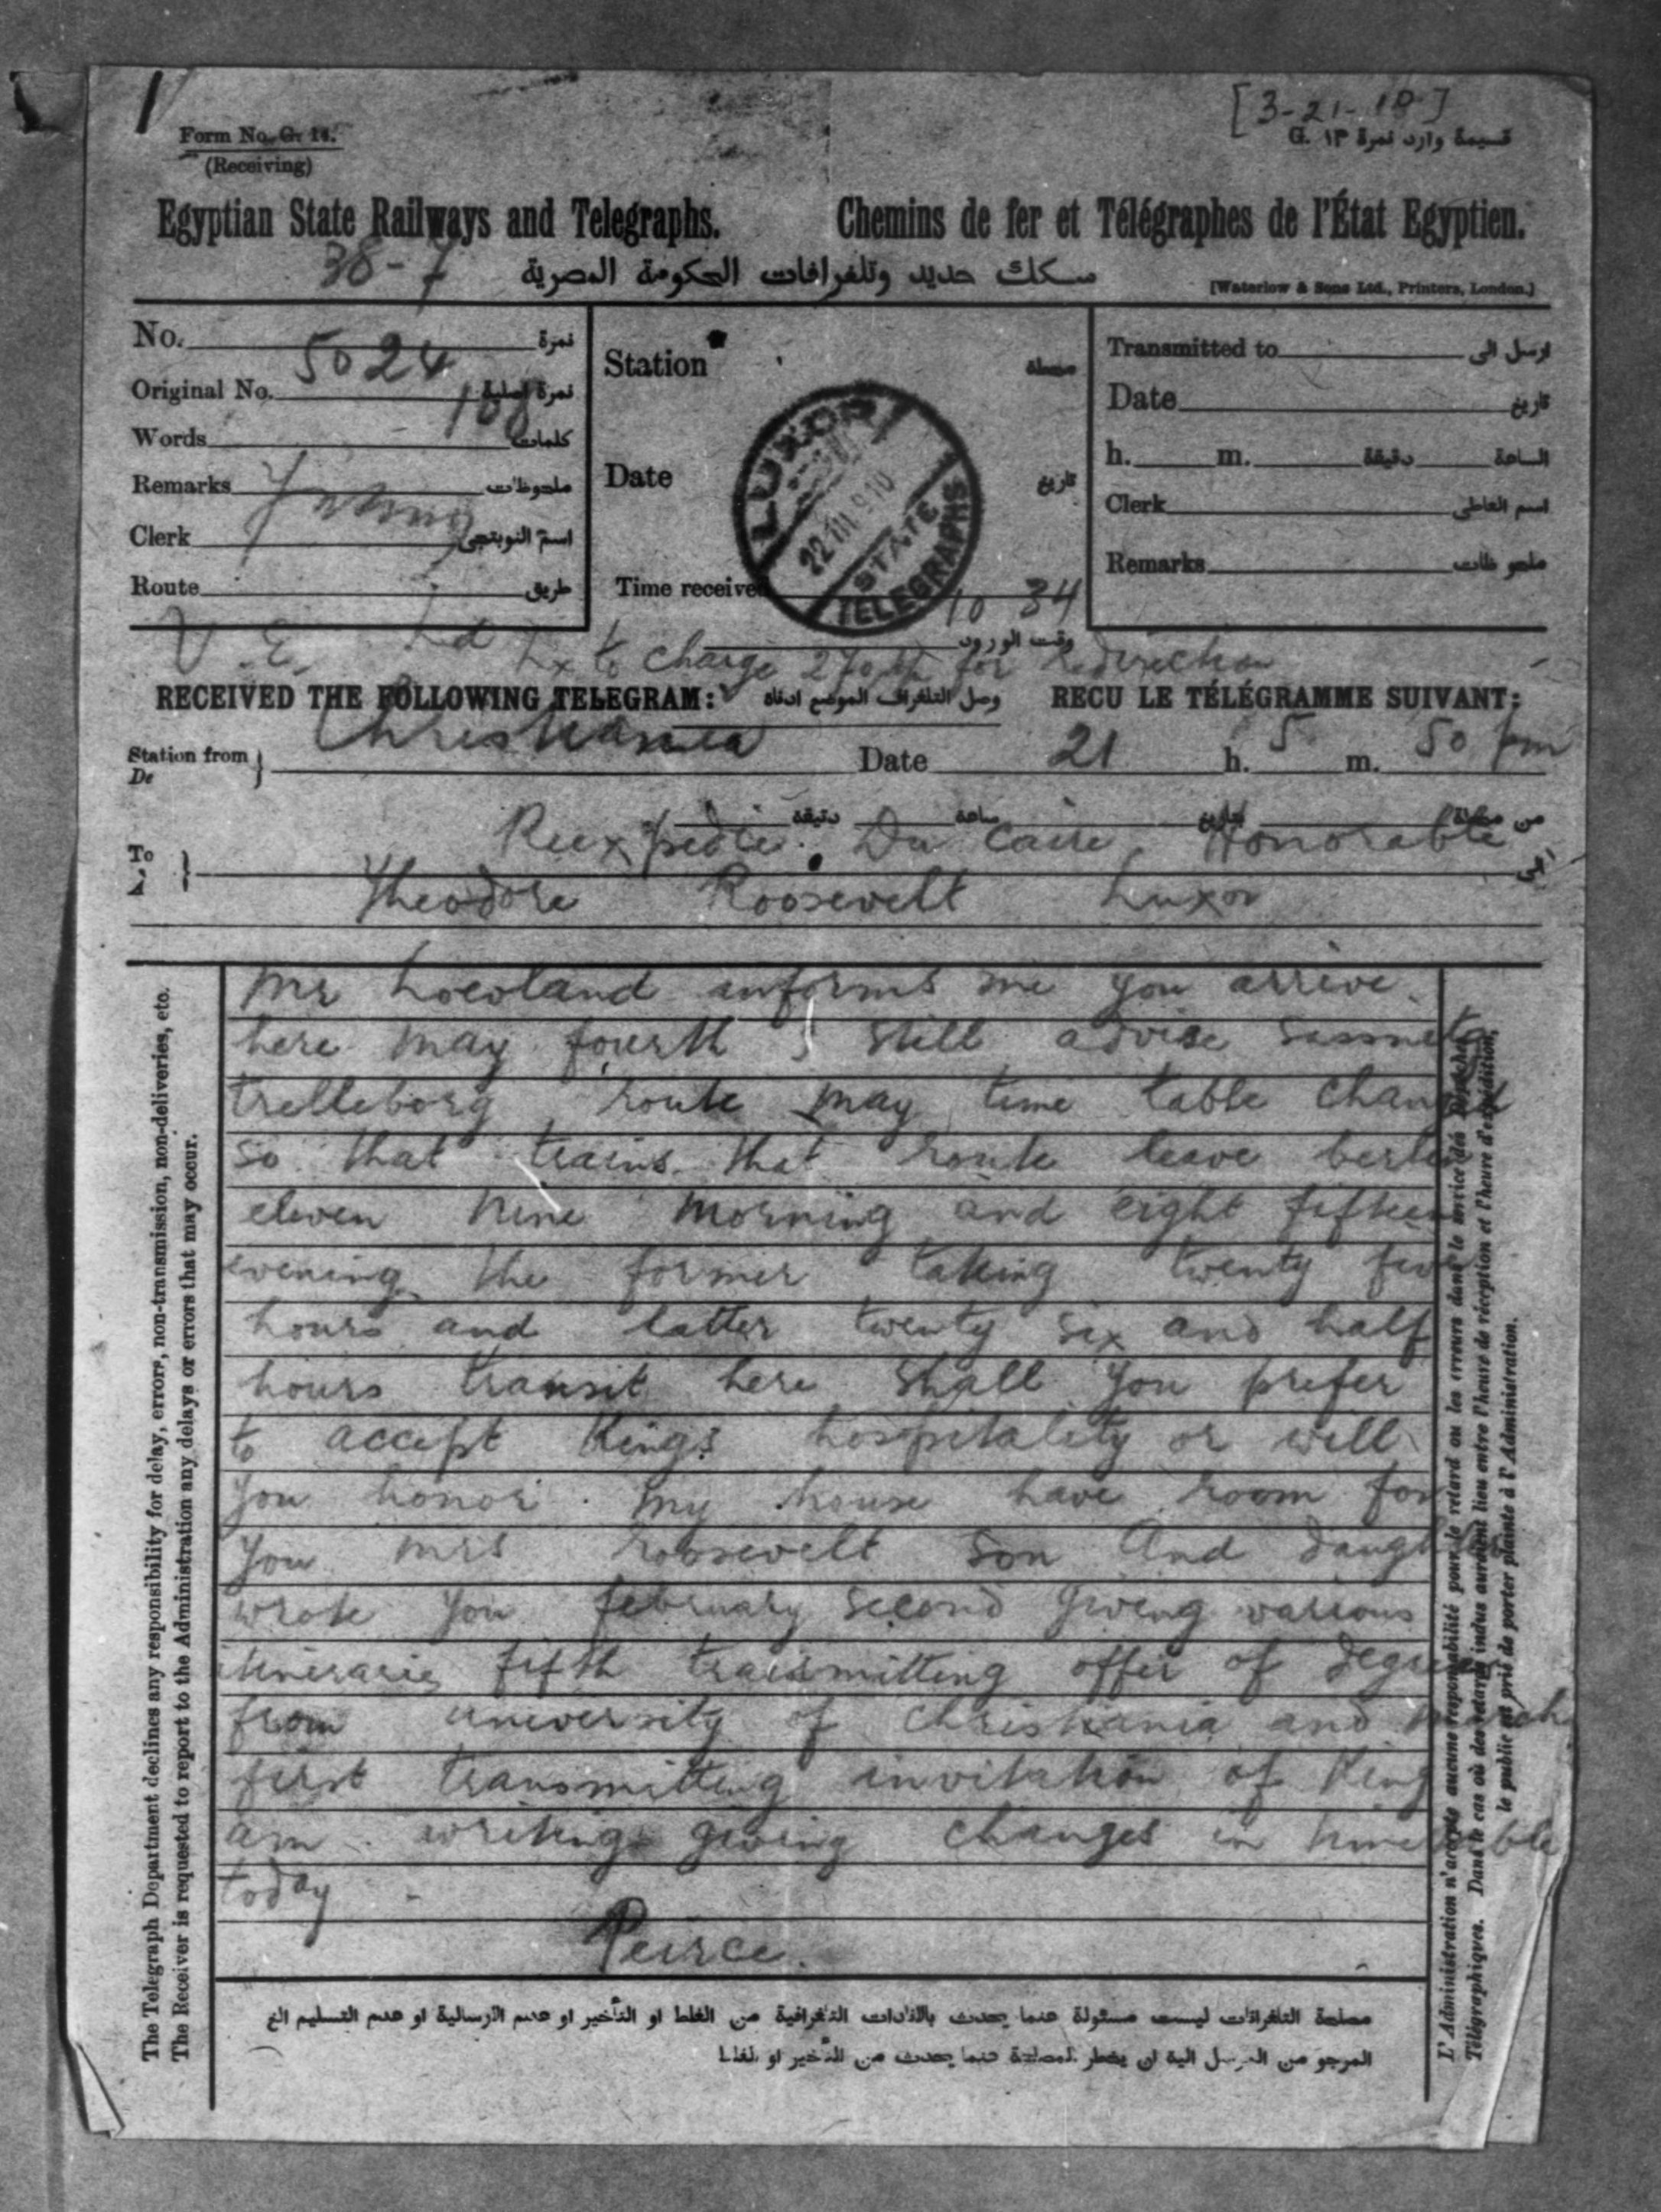 [3-21-10]
Form No. G. 14.
(Receiving)
قسيمة وارد نمرة ١٣ .G
Egyptian State Railways and Telegraphs.
Chemins de fer et Télégraphes de l'État Egyptien.
38-7
سكك حديد وتلغرافات الحكومة المصرية
[Waterlow & Sons Ltd., Printers, London.]
No. نمرة
5024
Original No. نمرة اصلية
108
Words كلمات
Remarks ملحوظات
Clerk اسم النوبتجى
Route طريق
Station محطة
Date تاريخ
LUXOR
22 III 910
STATE
TELEGRAPHS
Time received 10 34
وقت الورود
Transmitted to ارسل الى
Date تاريخ
h. m. دقيقة الساعة
Clerk اسم العاطى
Remarks ملحوظات
Lx to charge for redirection
RECEIVED THE FOLLOWING TELEGRAM: وصل التلغراف الموضح ادناه RECU LE TÉLÉGRAMME SUIVANT:
Station from Christiania Date 21 h. 5 m. 50 pm
De
من محطة بتاريخ ساعة دقيقة
Reexpedie Du Caire Honorable
To الى
Theodore Roosevelt Luxor
Mr Loevland informs me you arrive
here may fourth I still advise sassnitz
trelleborg route may time table changed
so that trains that route leave berlin
eleven nine morning and eight fifteen
evening the former taking twenty five
hours and latter twenty six and half
hours transit here shall you prefer
to accept Kings hospitality or will
you honor my house have room for
you mrs roosevelt son and daughter
wrote you february second giving various
itineraries fifth transmitting offer of degree
from university of christiania and march
first transmitting invitation of King
am writing giving changes in time table
today
Peirce.
The Telegraph Department declines any responsibility for delay, errors, non-transmission, non-deliveries, etc.
The Receiver is requested to report to the Administration any delays or errors that may occur.
L'Administration n'accepte aucune responsabilité pour le retard ou les erreurs dans le service des Dépêches
Télégraphiques. Dans le cas où des retards indus auraient lieu entre l'heure de réception et l'heure d'expédition,
le public est prié de porter plainte à l'Administration.
مصلحة التلغرافات ليست مسئولة عنما يحدث بالافادات التلغرافية من الغلط او التأخير او عدم الارسالية او عدم التسليم الخ
المرجو من المرسل الية ان يخطر المصلحة عنما يحدث من التأخير او الغلط